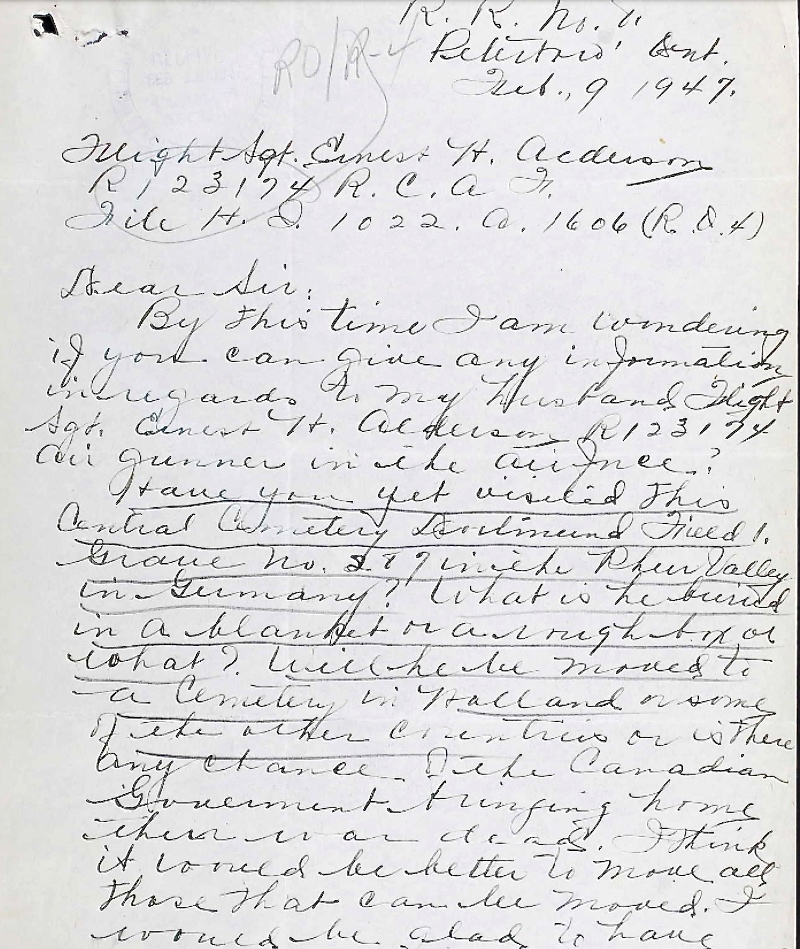 R. R. No. 1.
RO/R-4
Peterboro' Ont.
Feb., 9 1947.
Flight Sgt. Ernest H. Alderson
R123174 R. C. A F.
File H. Q. 1022. A. 1606 (R.O.4)
Dear Sir:
By this time I am wondering
if you can give any information
in regards to my husband Flight
Sgt. Ernest H. Alderson R123174
air gunner in the airforce?
Have you yet visited this
Central Cemetery Dortmund Field 1.
Grave No. in the Rhur Valley
in Germany? What is he buried
in a blanket or a rough box or
what? Will he be moved to
a Cemetery in Holland or some
of the other countries or is there
any chance of the Canadian
Goverment bringing home
their war dead. I think
it would be better to move all
those that can be moved. I
would be glad to have